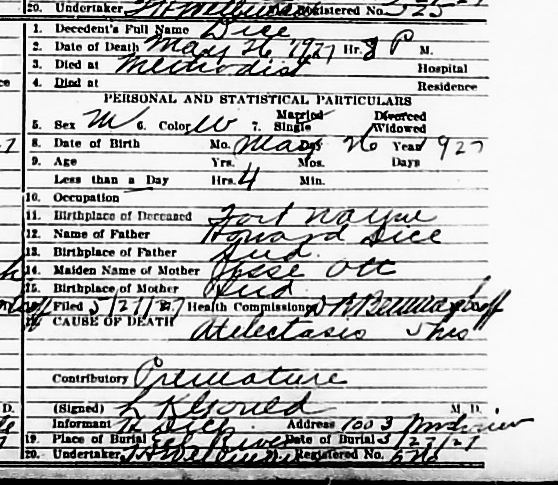 20. Undertaker Registered No. 525
1. Decedent's Full Name Dice
2. Date of Death May 26 1927 Hr. 8 P M.
3. Died at Methodist Hospital
4. Died at Residence
PERSONAL AND STATISTICAL PARTICULARS
5. Sex M 6. Color W 7. Married Single Divorced Widowed
8. Date of Birth Mo. May Day 26 Year 1927
9. Age Yrs. Mos. Days
Less than a Day Hrs. 4 Min.
10. Occupation
11. Birthplace of Deceased Fort Wayne
12. Name of Father Howard Dice
13. Birthplace of Father Ind.
14. Maiden Name of Mother Jesse Ott
15. Birthplace of Mother Ind
16. Filed 5/27/27 Health Commissioner
17. CAUSE OF DEATH
Atelectasis 5 hrs
Contributory Premature
(Signed) M. D.
Informant H Dice Address 1003
19. Place of Burial Eel River Date of Burial 5/27/27
20. Undertaker Registered No.